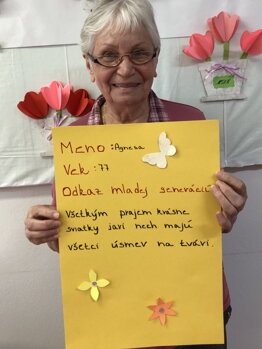 Meno : Agnesa
Vek : 77
Odkaz mladej generácií
Všetkým prajem krásne
sviatky jari nech majú
všetci úsmev na tvári.